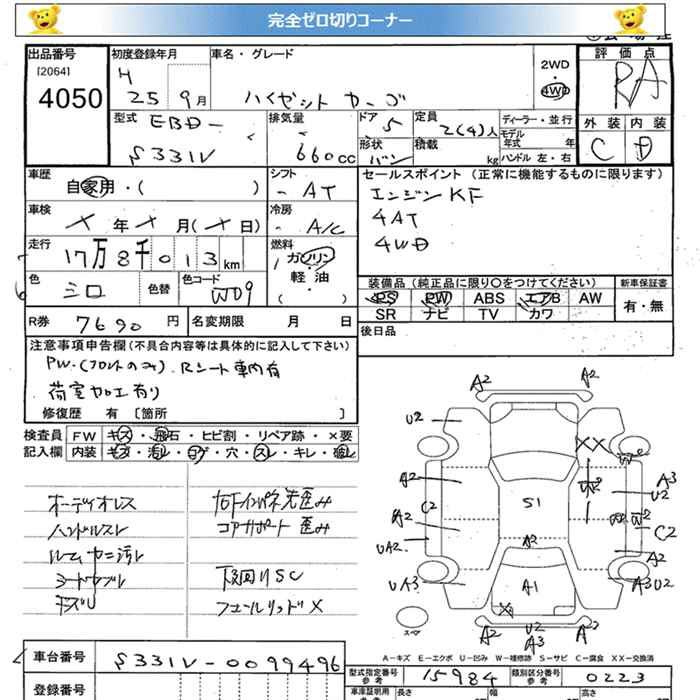 完全ゼロ切りコーナー
出品番号 初度登録年月 車名・グレード 2WD 評価点
[2064] H 4WD RA
4050 25 9月 ハイゼット カーゴ
型式 EBD- 排気量 ドア 5 定員 2(4)人 ディーラー・並行 外装 内装
S331V 660cc 形状 バン 積載 kg モデル年式 年式 ハンドル 左・右 C D
車歴 シフト セールスポイント (正常に機能するものに限ります)
自家用・( ) - AT エンジン KF
車検 冷房 4AT
年 月( 日) - A/C 4WD
走行 燃料
17万8千013km ガソリン・軽・油 ( )
色 色替 色コード 装備品 (純正品に限り〇をつけてください) 新車保証書
シロ W09 PS PW ABS エアB AW 有・無
SR ナビ TV カワ
R券 7690 円 名変期限 月 日 後日品
注意事項申告欄(不具合内容等は具体的に記入して下さい)
PW.(フロントのみ) Rシート車内有
荷室加工有り
修復歴 有 [箇所 ]
検査員 FW キズ・飛石・ヒビ割・リペア跡・×要
記入欄 内装 キズ・汚レ・コゲ・穴・スレ・キレ・破レ
オーディオレス 右Fインパネ先歪み
ハンドルスレ コアサポート 歪み
ルームヤニ汚レ
シートヤブレ 下回りSC
キズU フューエルリッド×
A2 A2
U2 XX W2
A2 W2 A3
C2 S1 U2
A2 W2 W2 C2
UA2 A2 A2
UA3 A1 A3U2
X
スペア A2 U2 A2
A3 A3
車台番号 S331V-0099496
A-キズ E-エクボ U-凹み W-補修跡 S-サビ C-腐食 XX-交換済
型式指定番号 参考 15984 類別区分番号 参考 0223
登録番号 車庫証明用 長さ 幅 高さ